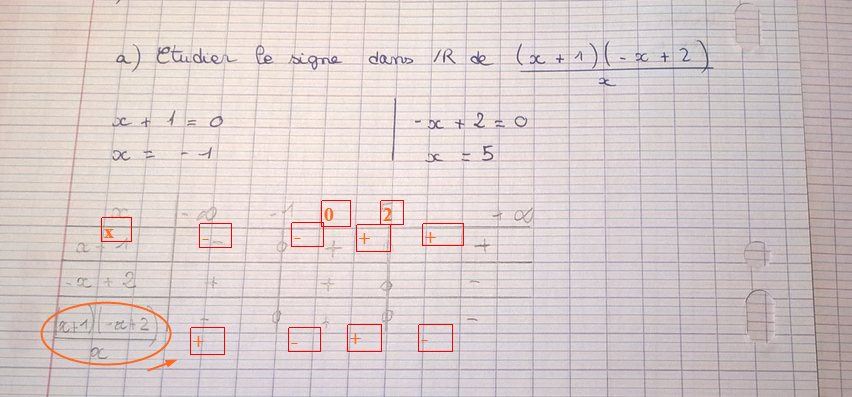 a) Etudier le signe dans IR de (x + 1)(-x + 2)
x
x + 1 = 0 -x + 2 = 0
x = -1 x = 5
x -∞ -1 0 2 +∞
x - - + +
x + 1 - 0 + +
-x + 2 + + 0 -
(x+1)(-x+2) - 0 + 0 -
x + - + -